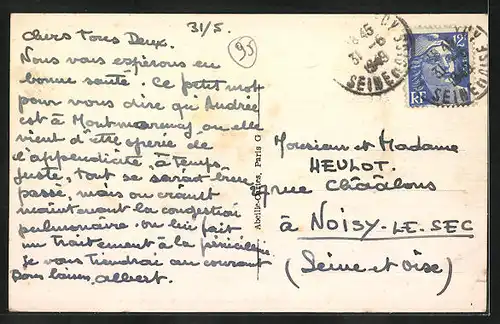 31/5.
95
Chers Tous Deux.
Nous vous espérons en
bonne santé. Ce petit mot
pour vous dire qu'Andrée
est à Montmorency où elle
vient d'être opérée de
l'appendicite à temps
juste, tout se serait bien
passé, mais on craint
maintenant la congestion
pulmonaire. on lui fait
un traitement à la pénicilline
Je vous tiendrai au courant
Bons baisers, Albert.
Abeille-Cartes, Paris
Monsieur et Madame
HEULOT.
7 rue Châalons
à NOISY-LE-SEC
(Seine et Oise)
18 45
31-5
SEINE
OISE
12F
RF